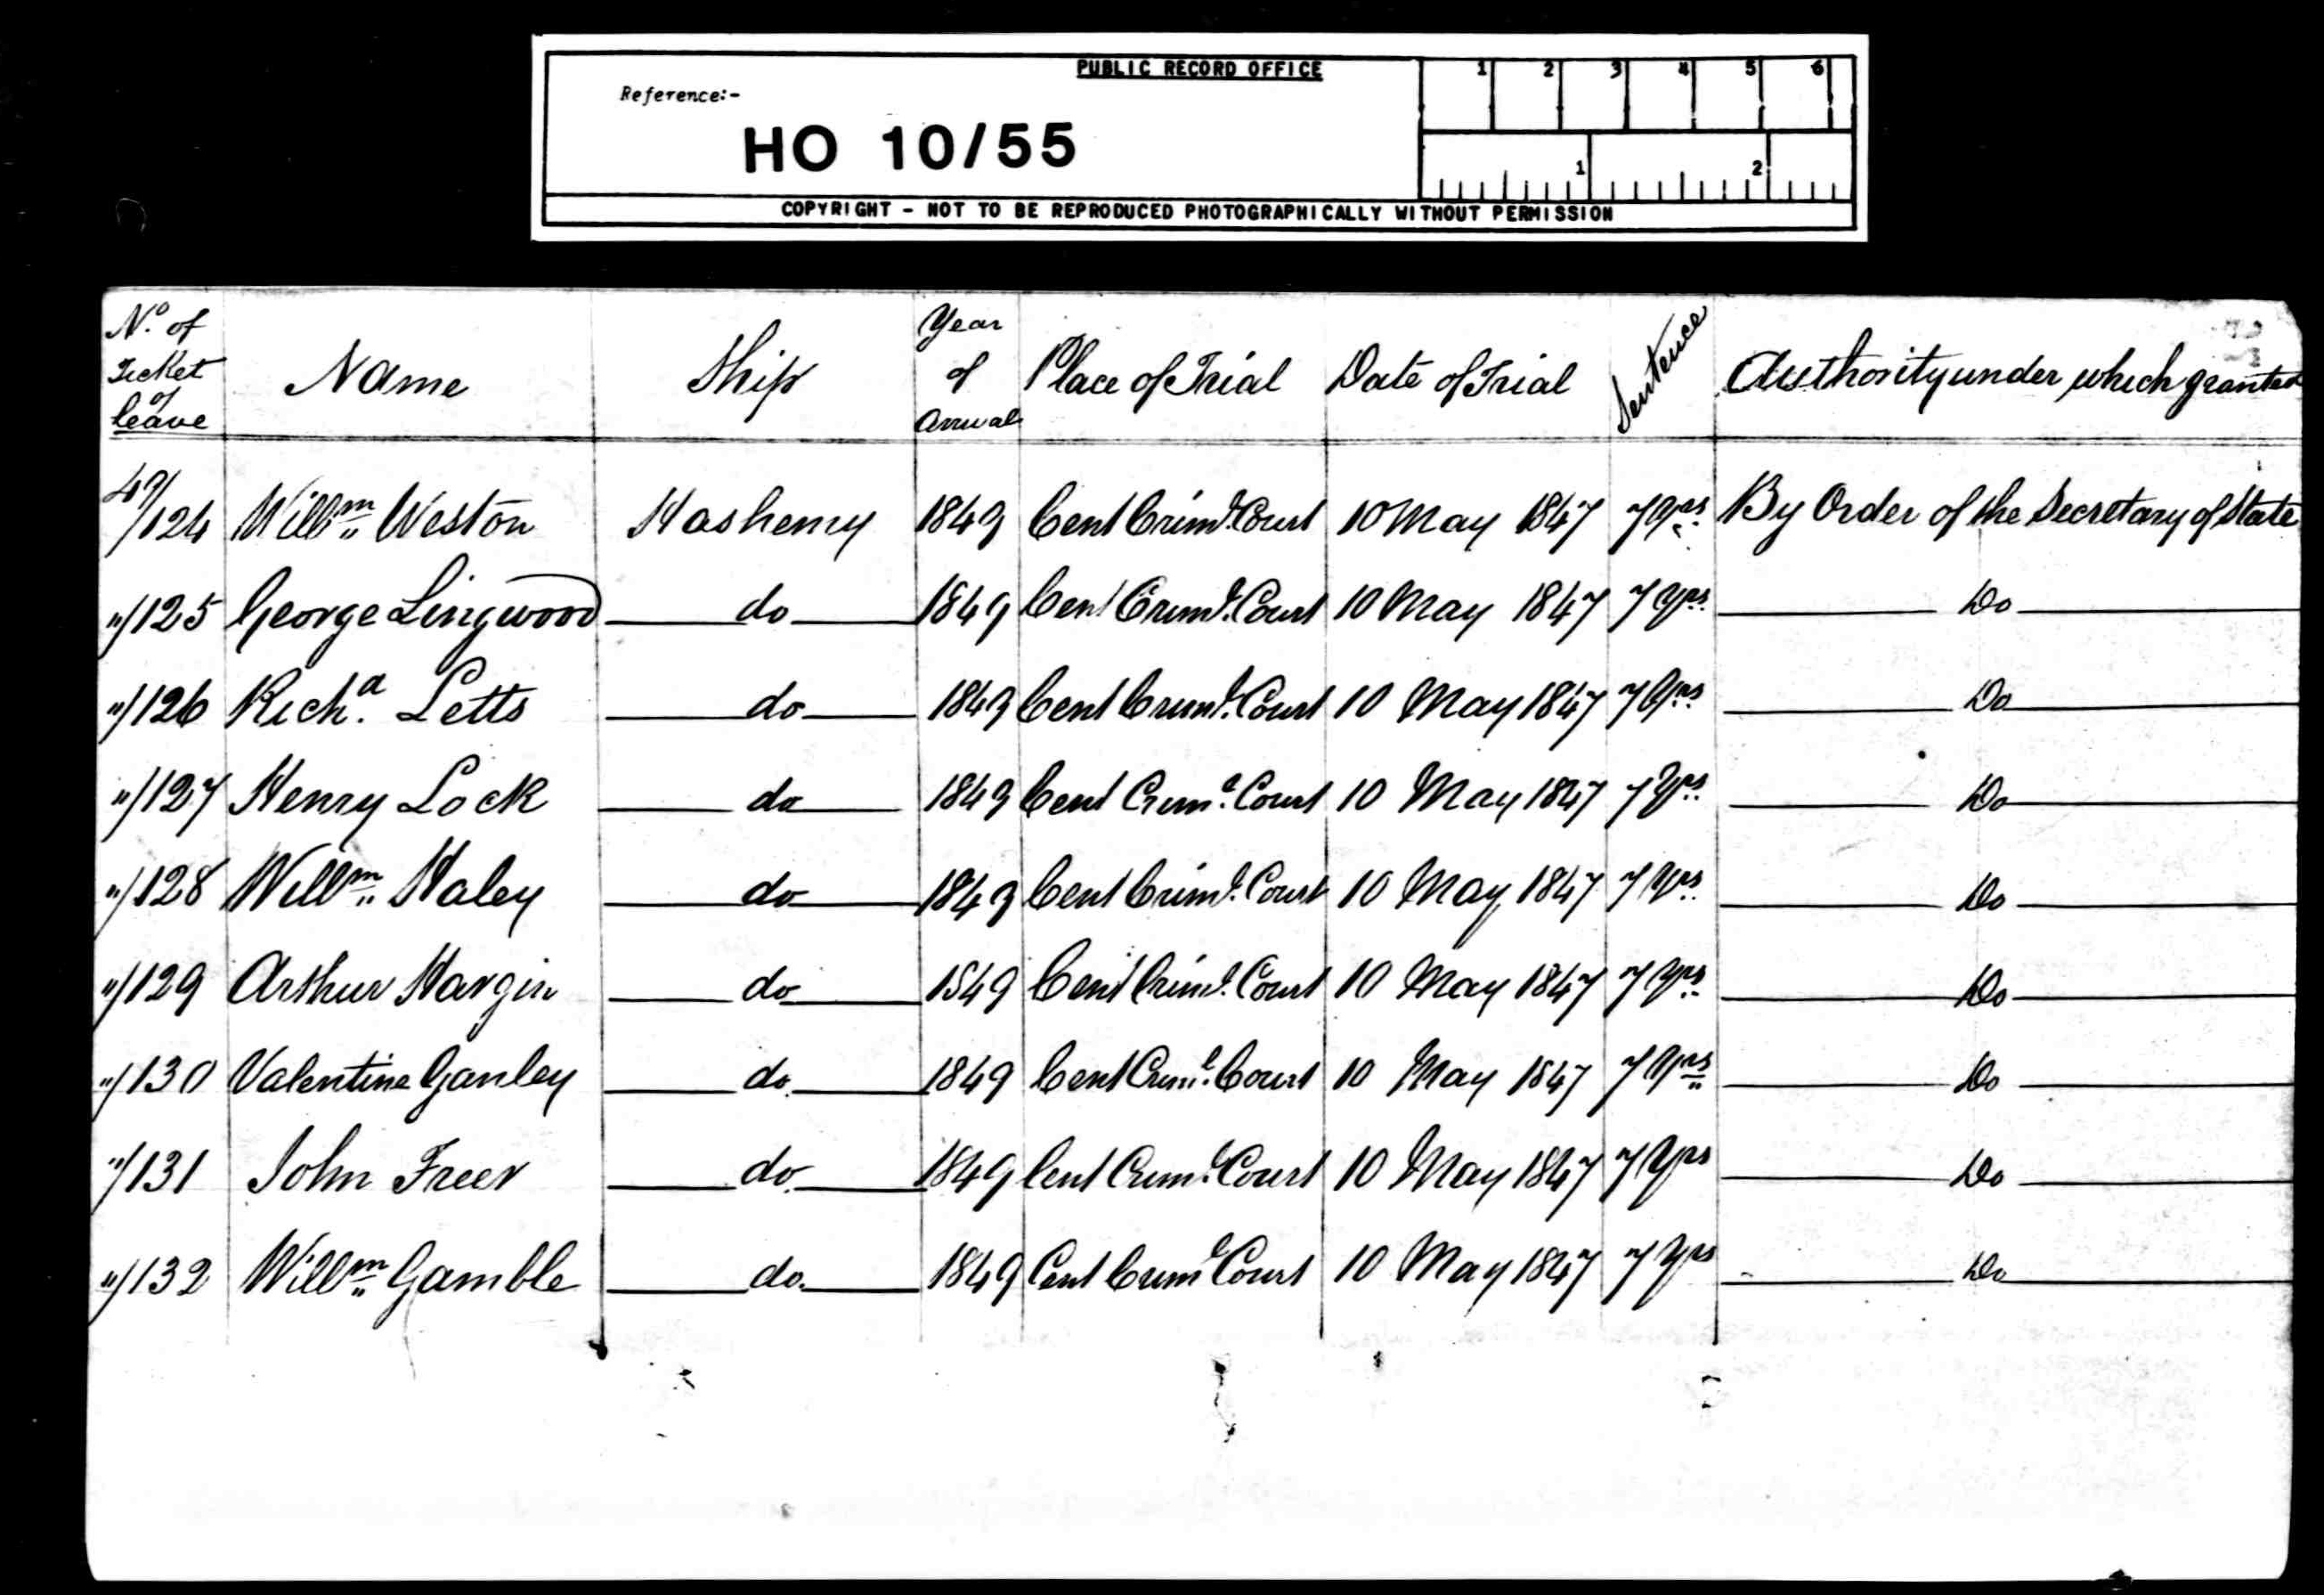 PUBLIC RECORD OFFICE
Reference:-
HO 10/55
1 2 3 4 5 6
1 2
COPYRIGHT - NOT TO BE REPRODUCED PHOTOGRAPHICALLY WITHOUT PERMISSION
No. of Ticket of leave Name Ship Year of Arrival Place of Trial Date of Trial Sentence Authority under which granted
49/124 Willm Weston Hashemy 1849 Cent Criml. Court 10 May 1847 7 Yrs. By Order of the Secretary of State
"/125 George Lingwood do 1849 Cent Criml. Court 10 May 1847 7 Yrs. Do
"/126 Richd. Letts do 1849 Cent Criml. Court 10 May 1847 7 Yrs. Do
"/127 Henry Lock do 1849 Cent Criml. Court 10 May 1847 7 Yrs. Do
"/128 Willm Haley do 1849 Cent Criml. Court 10 May 1847 7 Yrs. Do
"/129 Arthur Hargin do 1849 Cent Criml. Court 10 May 1847 7 Yrs. Do
"/130 Valentine Ganley do 1849 Cent Criml. Court 10 May 1847 7 Yrs Do
"/131 John Freer do 1849 Cent Criml. Court 10 May 1847 7 Yrs Do
"/132 Willm Gamble do. 1849 Cent Criml Court 10 May 1847 7 Yrs Do